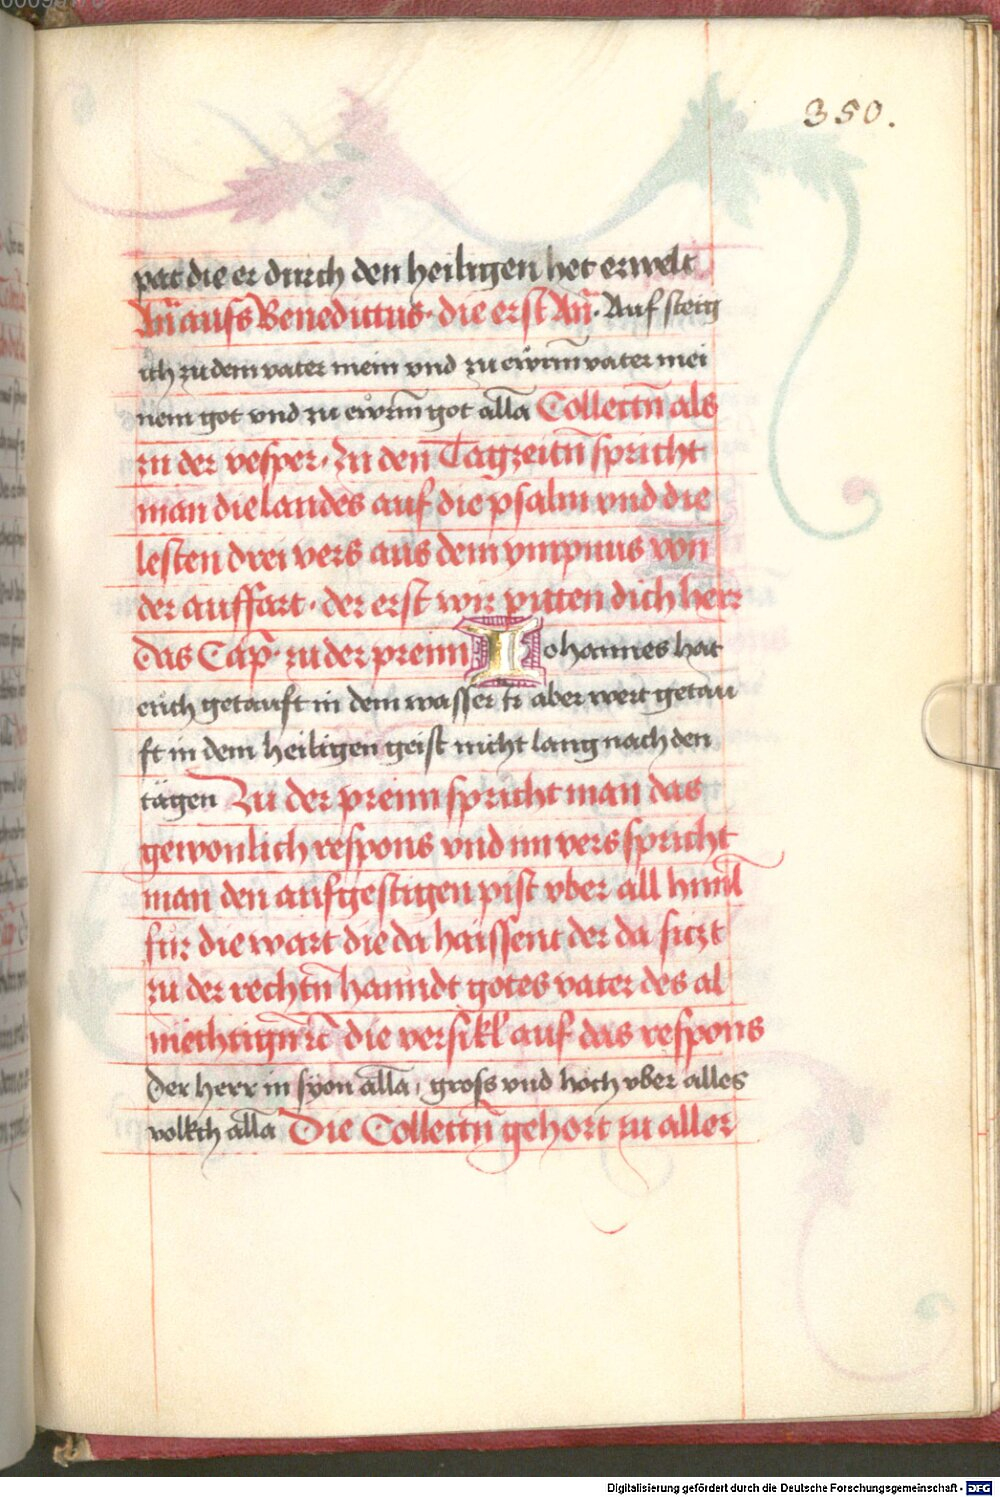 350.
pot die er durch den heiligen het erwelt
An̄ aufs Benedictus · die erst An̄ · Auf steig
ich zu dem vater mein vnd zu ewrm̄ vater mei
nem got vnd zu ewrm̄ got alla Collectn̄ als
zu der vesper · Zu den Tagzeitn̄ spricht
man die laudes auf die psalm vnd die
lesten drei vers aus dem ympnus von
der auffart · der erst wir piten dich herr
Das Cap̄ · zu der preim Iohannes hat
euch getauft in dem wasser Ir aber wert getau
ft in dem heiligen geist nicht lang nach den
tägen Zu der preim spricht man das
gewonlich respons vnd im vers spricht
man den aufgestigen pist vber all himl
für die wart die da haissent der da siczt
zu der rechtn̄ hanndt gotes vater des al
mechtign̄ rc̄ die versikl auf das respons
Der herr in syon alla , gross vnd hoch vber alles
volkch alla Die Collectn̄ gehort zu aller
Digitalisierung gefördert durch die Deutsche Forschungsgemeinschaft - DFG